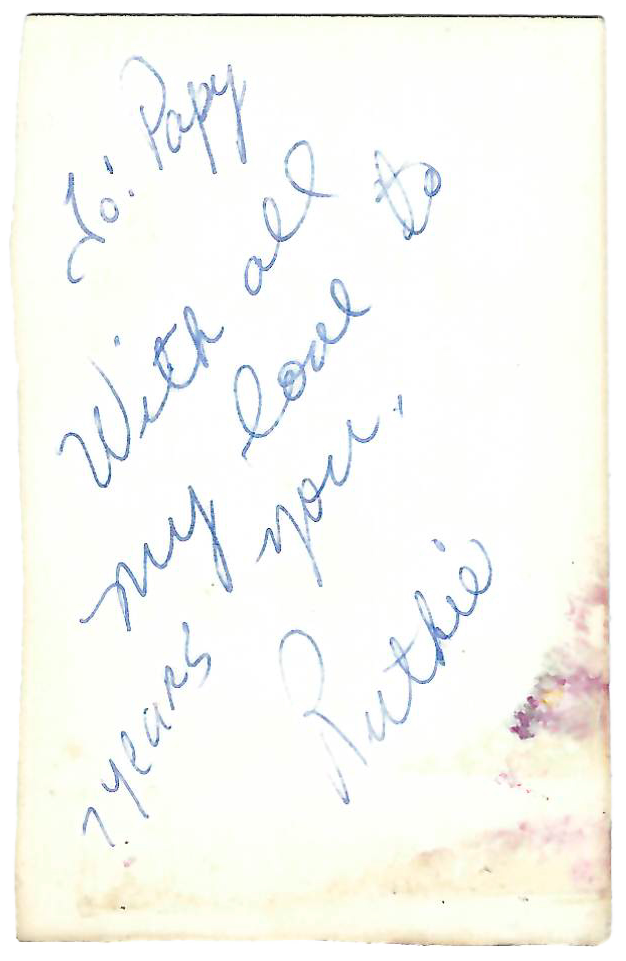 To: Papy
With all
my love to
you,
Ruthie
7 years